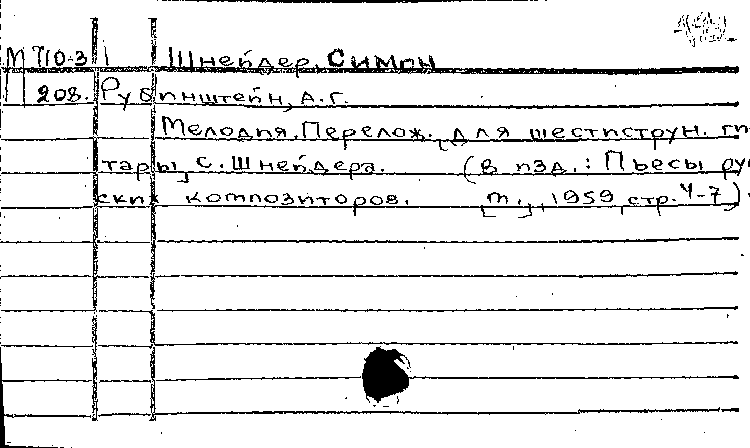 М П10-3 1 Шнейдер, Симон
П 208. Рубинштейн, А.Г.
Мелодия. Перелож. для шестиструн. ги
тары С. Шнейдера. (в изд.: Пьесы рус
ских композиторов. [М.], 1959, стр. 4-7).